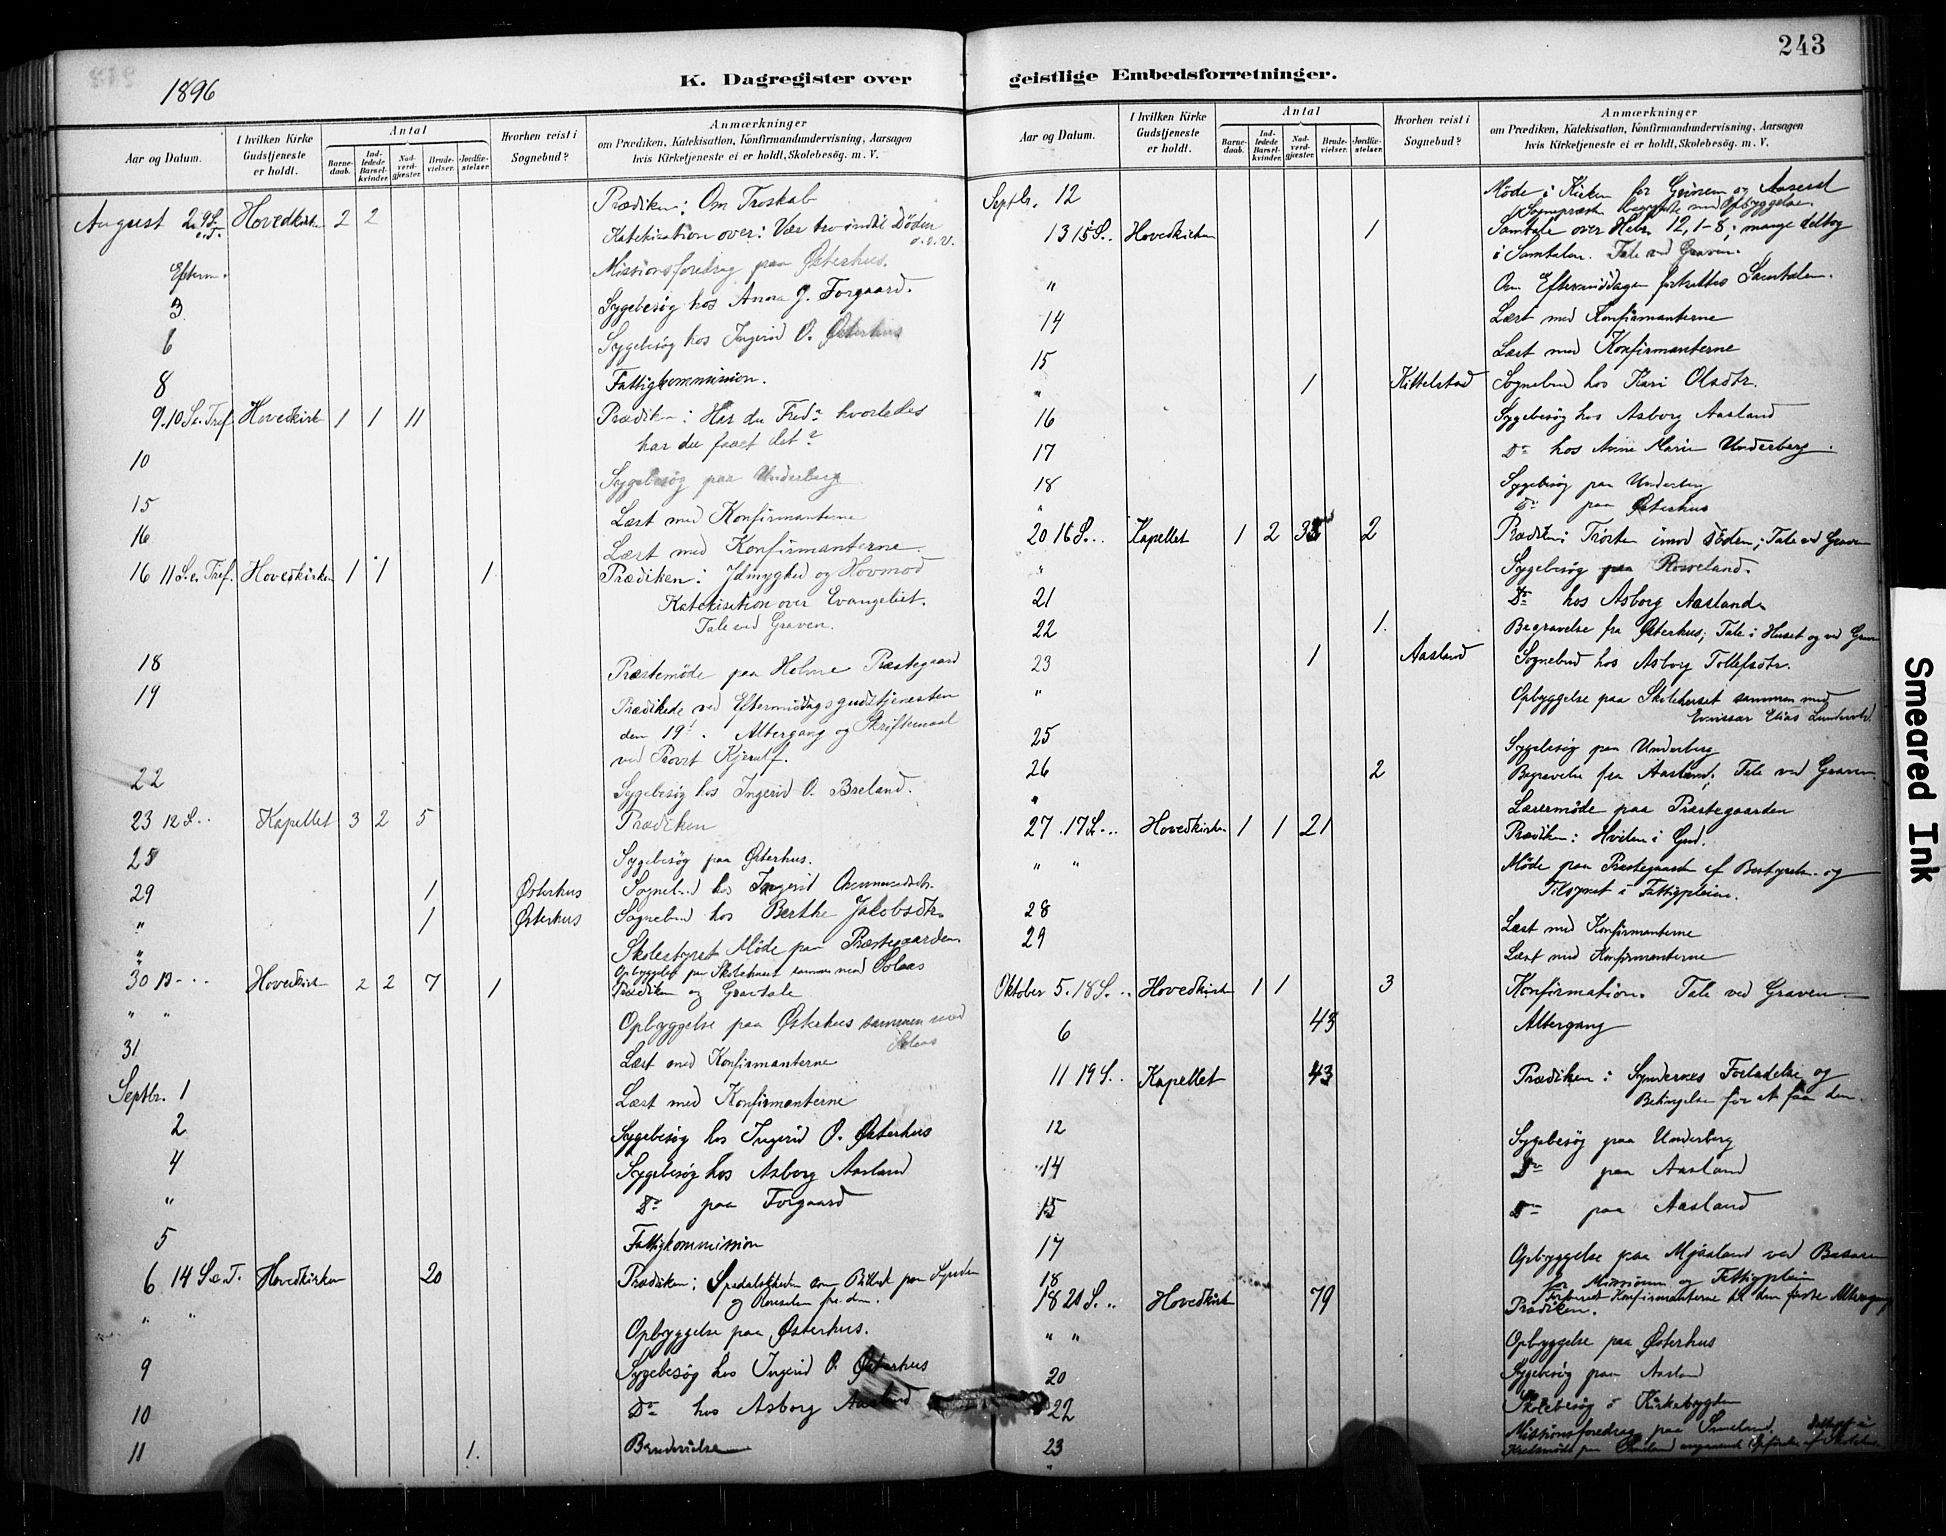 1896
K. Dagregister over
Aar og Datum.
I hvilken Kirke Gudstjeneste er holdt.
Antal
Barnedaab.
Indledede Barselkvinder.
Nadverdgjæster.
Brudevielser.
Jordfæstelser.
Hvorhen reist i Sognebud?
Anmærkninger
om Prædiken, Katekisation, Konfirmandundervisning, Aarsagen
hvis Kirketjeneste ei er holdt, Skolebesøg. m. V.
Prædiken: Om Troskab
August 2 9 S. e. T. Hovedkirken 2 2
Katekisation over: Vær tro indtil Døden
Efterm. Missionsforedrag paa Østerhus.
3 Sygebesøg hos Anna J. Forgaard.
6 Sygebesøg hos Ingerid O. Østerhus
8 Fattigkommission.
9. 10 S. e. Tref. Hovedkirk 1 1 11 Prædiken: Har du Fred? hvorledes
har du faaet det?
10 Sygebesøg paa Underberg
15 Læst med Konfirmanterne
16 Læst med Konfirmanterne.
16 11 S. e. Tref. Hovedkirken 1 1 1 Prædiken: Ydmyghed og Hovmod
Katekisation over Evangeliet.
Tale ved Graven.
18 Præstemøde paa Holme Præstegaard
19 Prædikede ved Eftermiddagsgudstjenesten
den 19. Altergang og Skriftemaal
ved Provst Kjerulf.
22 Sygebesøg hos Ingerid O. Breland.
23 12 S. Kapellet 3 2 5 Prædiken
25 Sygebesøg paa Østerhus.
29 1 Østerhus Sognebud hos Ingerit
" 1 Østerhus Sognebud hos Berthe Jakobsdtr.
" Skolestyret Møde paa Præstegaarden
Opbyggelse paa Skolehuset sammen med Solaas
30 13 Hovedkirk 2 2 7 1 Prædiken og Gravtale
" " Opbyggelse paa Østerhus sammen med
Solaas
31 Læst med Konfirmanterne
Septbr. 1 Læst med Konfirmanterne
2 Sygebesøg hos Ingerid O. Østerhus
4 Sygebesøg hos Asborg Aasland
" Do paa Forgaard
5 Fattigkommission
6 14 S. e. T. Hovedkirken 20 Prædiken: Spedalskheden som Billede paa Synden
og Renselsen fra den.
" " Opbyggelse paa Østerhus.
9 Sygebesøg hos Ingerid O. Østerhus
10 Do hos Asborg Aasland
11 1. Brudevielse
243
geistlige Embedsforretninger.
Aar og Datum.
I hvilken Kirke Gudstjeneste er holdt.
Antal
Barnedaab.
Indledede Barselkvinder.
Nadverdgjæster.
Brudevielser.
Jordfæstelser.
Hvorhen reist i Sognebud?
Anmærkninger
om Prædiken, Katekisation, Konfirmandundervisning, Aarsagen
hvis Kirketjeneste ei er holdt, Skolebesøg. m. V.
Septbr. 12 Møde i Kirken for Grinsem og Aaseral
Sognepræst begyndte med Opbyggelse.
13 15 S. Hovedkirken 1 Samtale over Hebr. 12, 1-8; mange deltog
i Samtalen. Tale ved Graven.
" Om Eftermiddagen fortsattes Samtalen.
14 Læst med Konfirmanterne
15 Læst med Konfirmanterne
" 1 Kittelstad Sognebud hos Kari Olsdtr.
16 Sygebesøg hos Asborg Aasland
17 Do hos Anne Marie Underberg.
18 Sygebesøg paa Underberg
" Do paa Østerhus
20 16 S. Kapellet 1 2 2 Prædiken: Trøsten imod Døden; Tale ved Graven
" Sygebesøg paa Rosseland.
21 Do hos Asborg Aasland
22 1. Begravelse fra Østerhus; Tale i Huset og ved Graven
23 1 Aasland Sognebud hos Asborg Tollefsdtr.
" Opbyggelse paa Skolehuset sammen med
Emissær Elias
25 Sygebesøg paa Underberg
26 2 Begravelse fra Aasland; Tale ved Graven.
" Lærermøde paa Præstegaarden
27 17 S. Hovedkirken 1 1 21 Prædiken: Hvilen i Gud.
" " Møde paa Præstegaarden af Bestyrelsen og
Tilsynet i Fattigpleien.
28 Læst med Konfirmanterne
29 Læst med Konfirmanterne
Oktober 5. 18 S. Hovedkirken 1 1 3 Konfirmation. Tale ved Graven
6 43 Altergang
11 19 S. Kapellet 43 Prædiken: Syndernes Forladelse og
Betingelse for at faa den.
12 Sygebesøg paa Underberg
14 Do paa Aasland
15 Do paa Aasland
17 Opbyggelse paa Mjaaland ved Basaren
for Missionen og Fattigpleien
18 Forberedt Konfirmanterne til den første Altergang
18 20 S. Hovedkirk 79 Prædiken.
" " Opbyggelse paa Østerhus
20 Sygebesøg paa Aasland
22 Skolebesøg i Kirkebygden
23 Missionsforedrag paa Smeland.
"
Smeared Ink